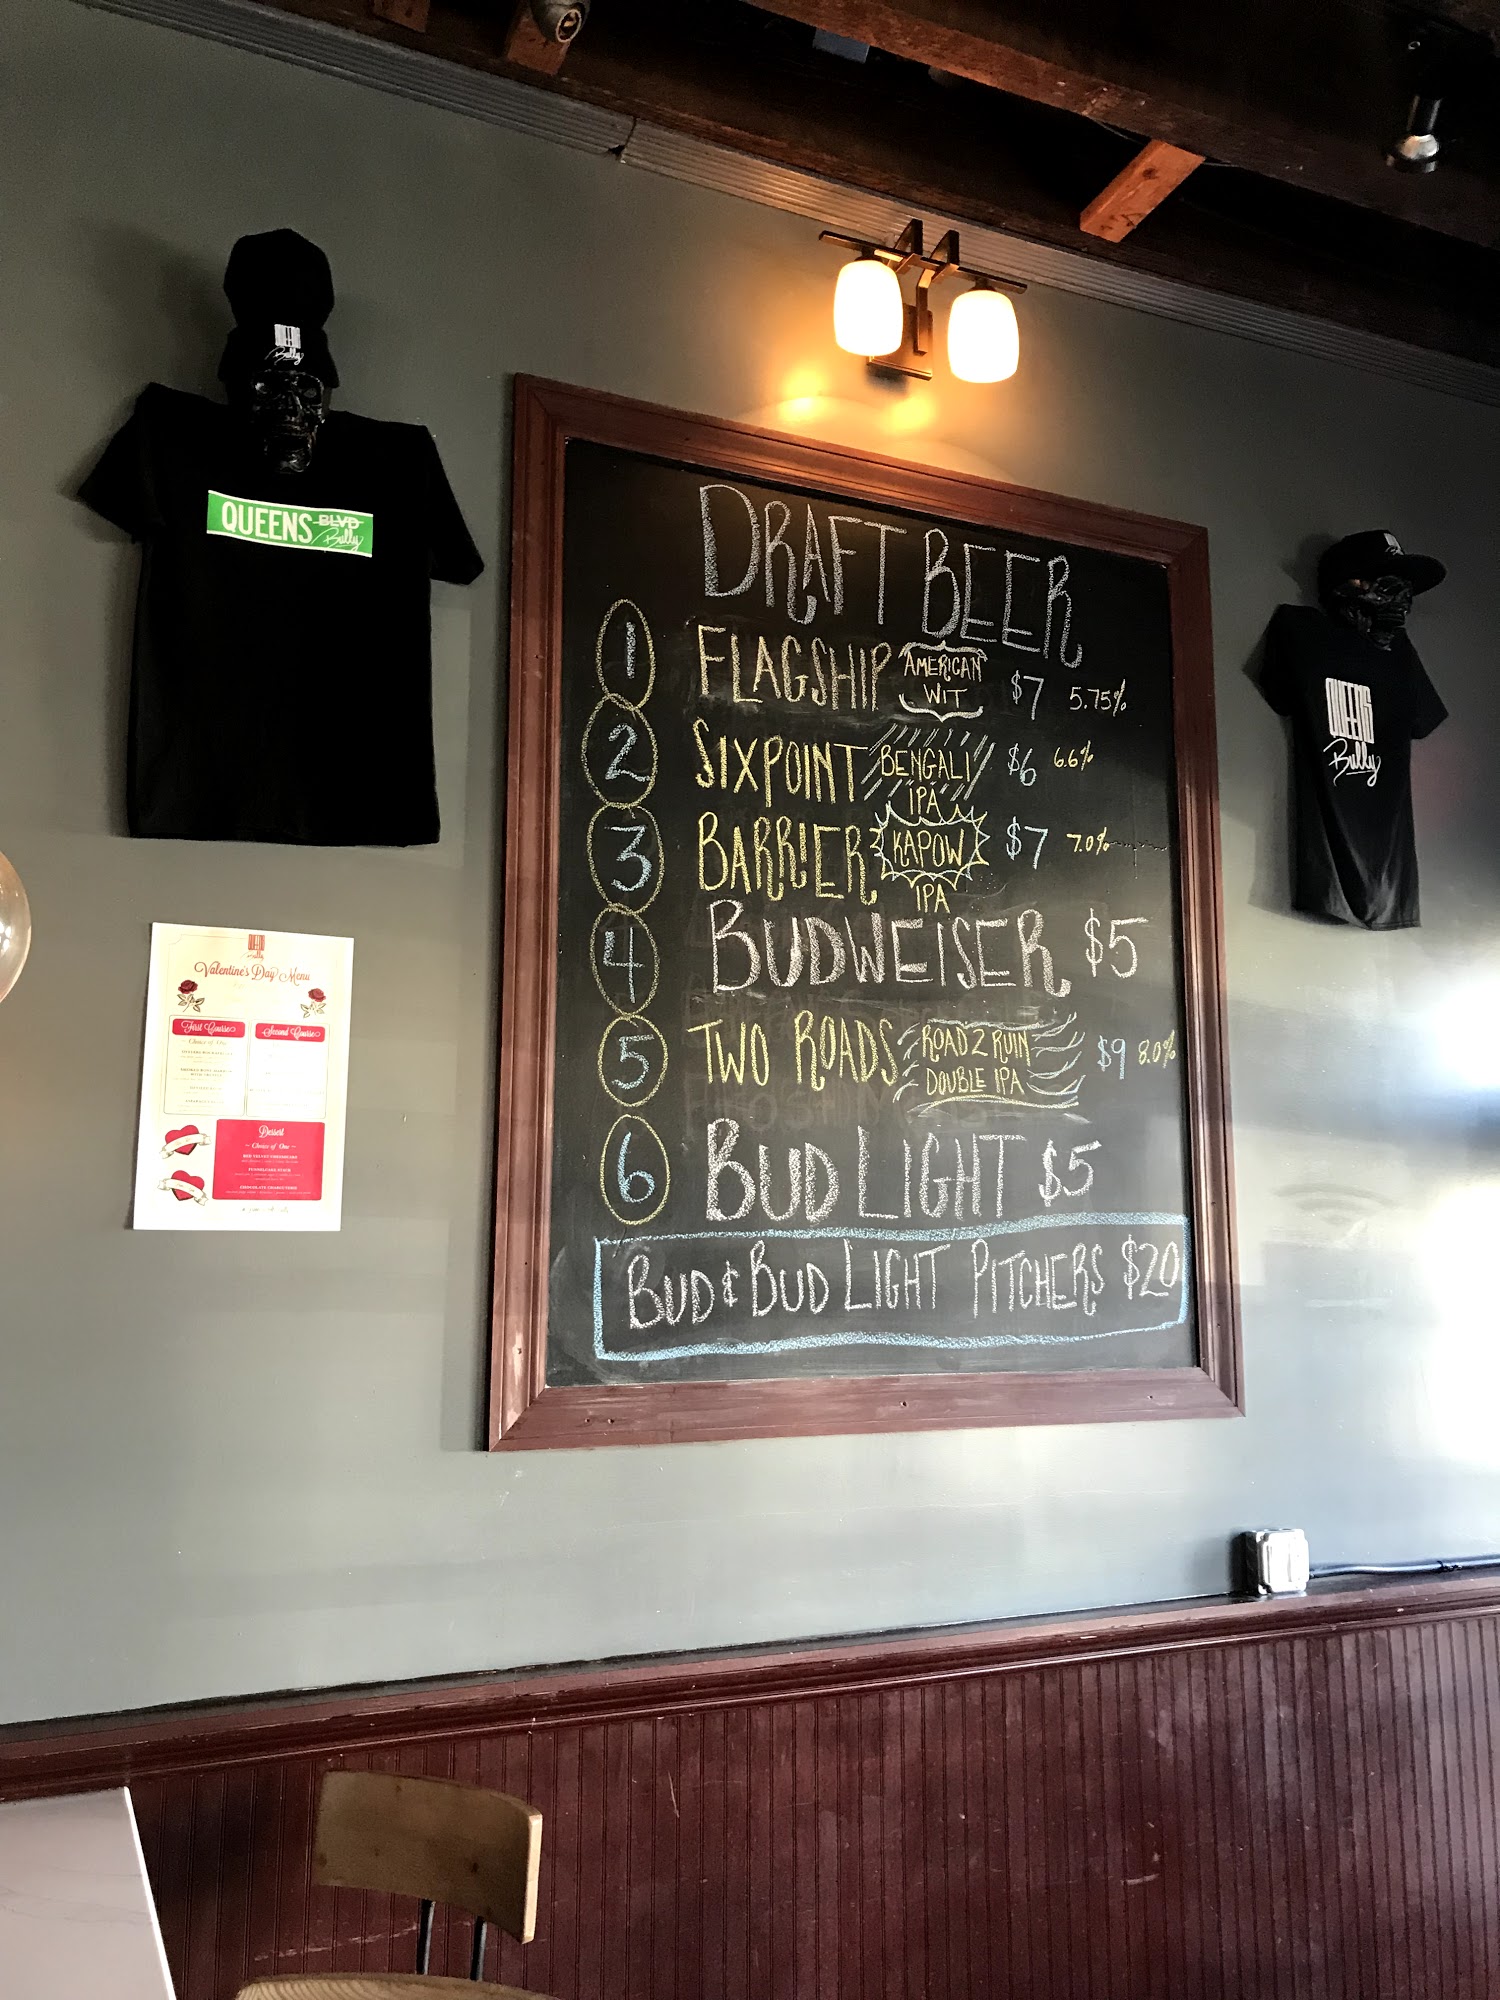 QUEENS
Bully
QUEENS BLVD
Bully
DRAFT BEER
1 FLAGSHIP AMERICAN WIT $7 5.75%
2 SIXPOINT BENGALI IPA $6 6.6%
3 BARRIER KAPOW IPA $7 7.0%
4 BUDWEISER $5
5 TWO ROADS ROAD 2 RUIN DOUBLE IPA $9 8.0%
6 BUD LIGHT $5
BUD & BUD LIGHT PITCHERS $20
QUEENS
Bully
QUEENS
Bully
Valentine's Day Menu
First Course
~ Choice of One ~
Second Course
Dessert
~ Choice of One ~
RED VELVET CHEESECAKE